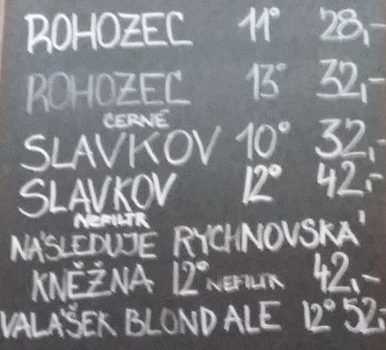 ROHOZEC 11° 28,-
ROHOZEC 13° 32,-
ČERNÉ
SLAVKOV 10° 32,-
SLAVKOV 12° 42,-
NEFILTR
NÁSLEDUJE RYCHNOVSKÁ
KNĚŽNA 12° NEFILTR 42,-
VALAŠEK BLOND ALE 12° 52,-